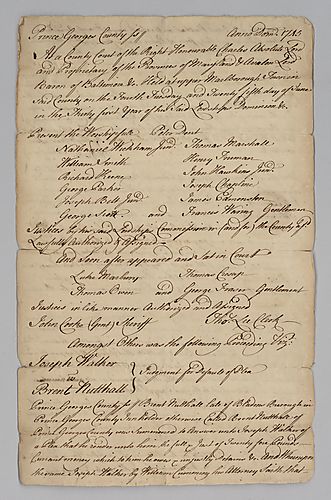 Prince Georges County ss Anno Dom: 1745
At a County Court of the Right Honourable Charles Absolute Lord
and Proprietary of the Provinces of Maryland & Avalon Lord
Baron of Baltimore &c. Held at upper Marlborough Town in
Said County on the Fourth Tuesday and Twenty fifth day of June
in the Thirty first Year of his said Lordships Dominion &c.
Present the Worshipful Peter Dent
Nathaniel Wickham Junr. Thomas Marshall
William Smith Henry Truman
Richard Keene John Hawkins Junr.
George Parker Joseph Chapline
Joseph Belt Junr. James Edmonston
George Scott and Francis Waring Gentlemen
Justices by his said Lordships Commission in and for the County aforesd.
Lawfully Authorized & Assigned
And soon after appeared and Sat in Court
Luke Marbury Thomas Cresap
Thomas Owen and George Fraser Gentlemen
Justices in like manner Authorized and Assigned
John Cooke Gent. Sheriff Tho. Lee Clerk
Amongst Others was the following Proceeding Viz.
Joseph Walker
Judgment for Dispute of Plea
Brent Nutthall
Prince Georges County ss Brent Nutthall late of Bladen Borough in
Prince Georges County Inn holder otherwise called Brent Nutthall of
Prince Georges County was Summoned to answer unto Joseph Walker of
a Plea that he render unto him the full & Just of Twenty four Pounds
Current money which to him he owes & unjustly detains &c. And Whereupon
the same Joseph Walker by William Cumming his Attorney Saith that